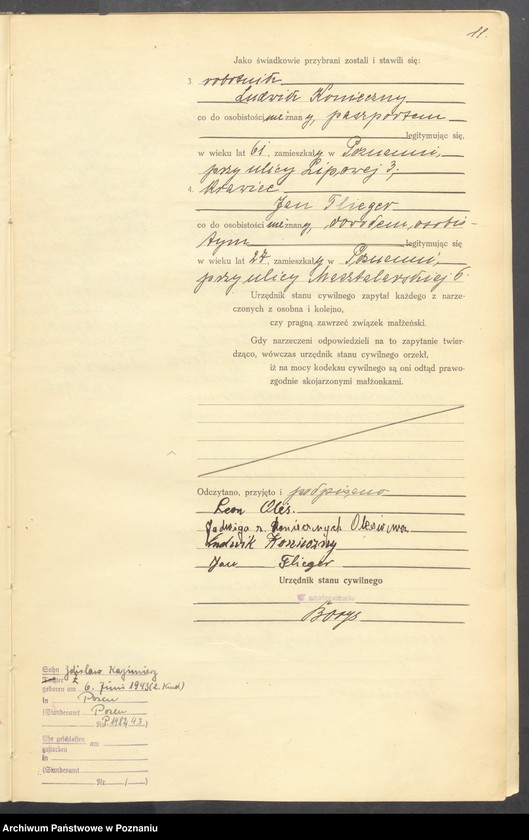 11.
Jako świadkowie przybrani zostali i stawili się:
3. robotnik
Ludwik Konieczny
co do osobistości nieznany, paszportem
legitymując się,
w wieku lat 61, zamieszkały w Poznaniu,
przy ulicy Lipowej 3;
4. krawiec
Jan Flieger
co do osobistości nieznany, dowodem osobi-
stym legitymując się
w wieku lat 27, zamieszkały w Poznaniu,
przy ulicy Masztalarskiej 6.
Urzędnik stanu cywilnego zapytał każdego z narze-
czonych z osobna i kolejno,
czy pragną zawrzeć związek małżeński.
Gdy narzeczeni odpowiedzieli na to zapytanie twier-
dząco, wówczas urzędnik stanu cywilnego orzekł,
iż na mocy kodeksu cywilnego są oni odtąd prawo-
zgodnie skojarzonymi małżonkami.
Odczytano, przyjęto i podpisano
Leon Oleś.
Jadwiga z Koniecznych Olesiowa
Ludwik Konieczny
Jan Flieger
Urzędnik stanu cywilnego
W zastępstwie
Borys
Sohn Zdislaw Kazimierz
Tochter
geboren am 6. Juni 1943 (2. Kind)
in Posen
(Standesamt Posen
Nr. P.1482/43)
Ehe geschlossen am
gestorben
in
(Standesamt
Nr. /)
Archiwum Państwowe w Poznaniu